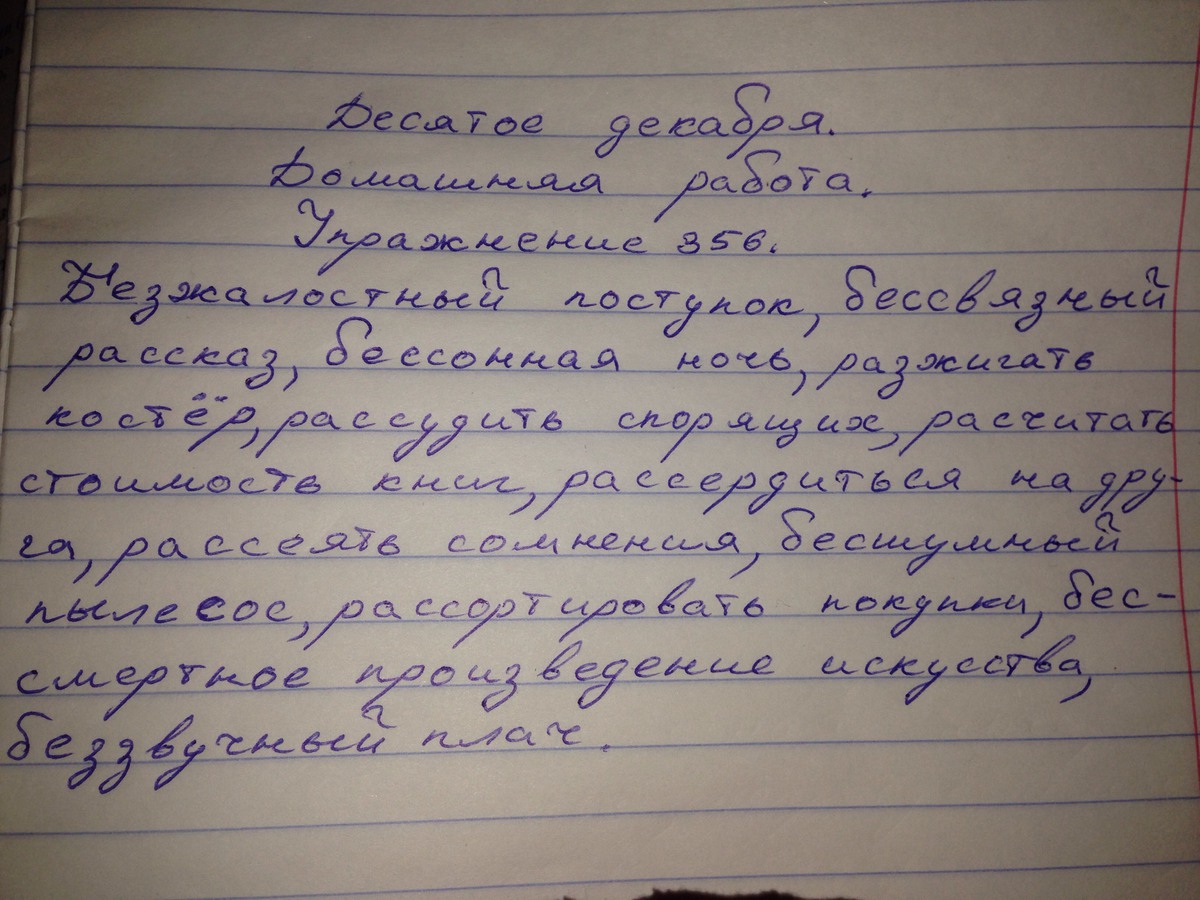 Десятое декабря.
Домашняя работа.
Упражнение 356.
Безжалостный поступок, бессвязный
рассказ, бессонная ночь, разжигать
костёр, рассудить спорящих, расчитать
стоимость книг, рассердиться на дру-
га, рассеять сомнения, бесшумный
пылесос, рассортировать покупки, бес-
смертное произведение искусства,
беззвучный плач.